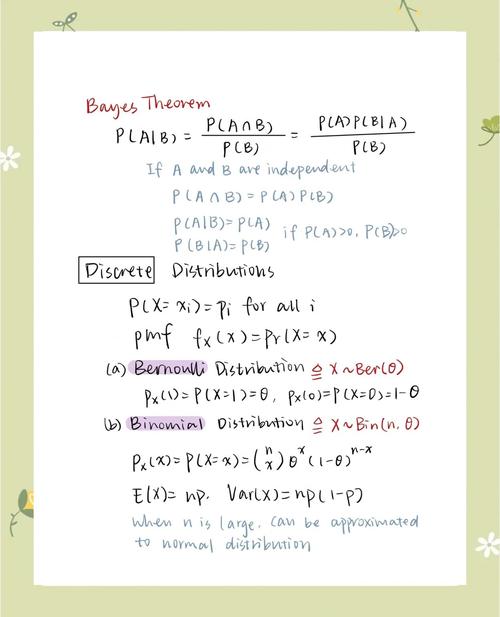 Bayes Theorem
P(A|B) = P(A∩B)/P(B) = P(A)P(B|A)/P(B)
If A and B are independent
P(A∩B) = P(A)P(B)
P(A|B) = P(A)
P(B|A) = P(B) if P(A)>0, P(B)>0
Discrete Distributions
P(X=xᵢ)=pᵢ for all i
pmf fₓ(x)=Pr(X=x)
(a) Bernoulli Distribution ≙ X~Ber(θ)
Pₓ(1)=P(X=1)=θ, Pₓ(0)=P(X=0)=1-θ
(b) Binomial Distribution ≙ X~Bin(n,θ)
Pₓ(x)=P(X=x)=(n x)θˣ(1-θ)ⁿ⁻ˣ
E(X)=np. Var(X)=np(1-p)
When n is large, can be approximated
to normal distribution